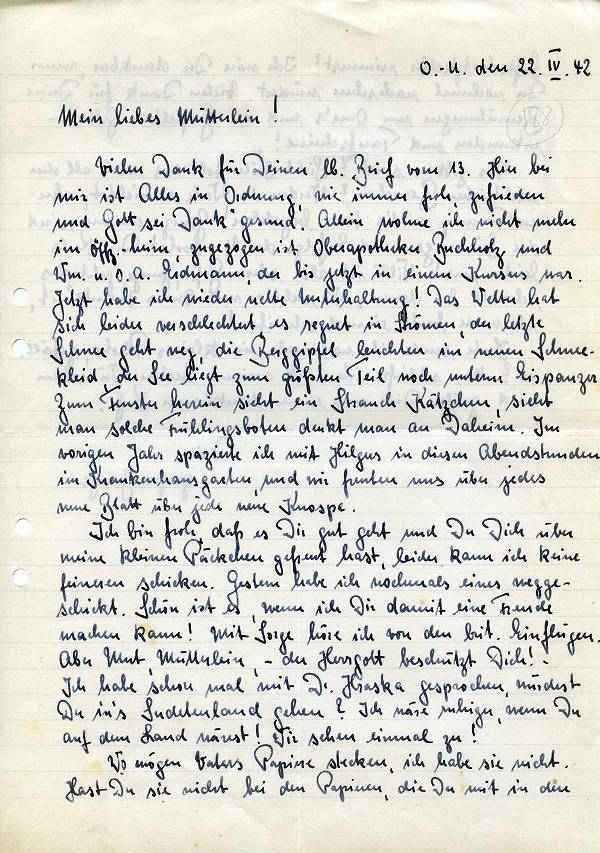 O.-U. den 22. IV. 42
Mein liebes Mütterlein!
Vielen Dank für Deinen lb. Brief vom 13. Hier bei
mir ist Alles in Ordnung, wie immer froh, zufrieden
und Gott sei Dank gesund. Allein wohne ich nicht mehr
im Offz.-heim, zugezogen ist Oberapotheker Buchholz und
Wm. u. O.A. Erdmann, der bis jetzt in einem Kursus war.
Jetzt habe ich wieder nette Unterhaltung! Das Wetter hat
sich leider verschlechtert es regnet in Strömen, der letzte
Schnee geht weg, die Berggipfel leuchten im neuen Schnee-
kleid, der See liegt zum größten Teil noch unterm Eispanzer
Zum Fenster herein sieht ein Strauch Kätzchen, sieht
man solche Frühlingsboten denkt man an Daheim. Im
vorigen Jahr spazierte ich mit Hilgus in diesen Abendstunden
im Krankenhausgarten, und wir freuten uns über jedes
neue Blatt über jede neue Knospe.
Ich bin froh, daß es Dir gut geht und Du Dich über
meine kleinen Päckchen gefreut hast, leider kann ich keine
feineren schicken. Gestern habe ich nochmals eines wegge-
schickt. Schön ist es, wenn ich Dir damit eine Freude
machen kann! Mit Sorge höre ich von den brit. Einflügen.
Aber Mut, Mütterlein, – der Herrgott beschützt Dich! –
Ich habe schon mal mit Dr. Hraska gesprochen, würdest
Du in's Sudetenland gehen? Ich wäre ruhiger, wenn Du
auf dem Land wärest! Wir sehen einmal zu!
Wo mögen Vaters Papiere stecken, ich habe sie nicht.
Hast Du sie nicht bei den Papieren, die Du mit in den